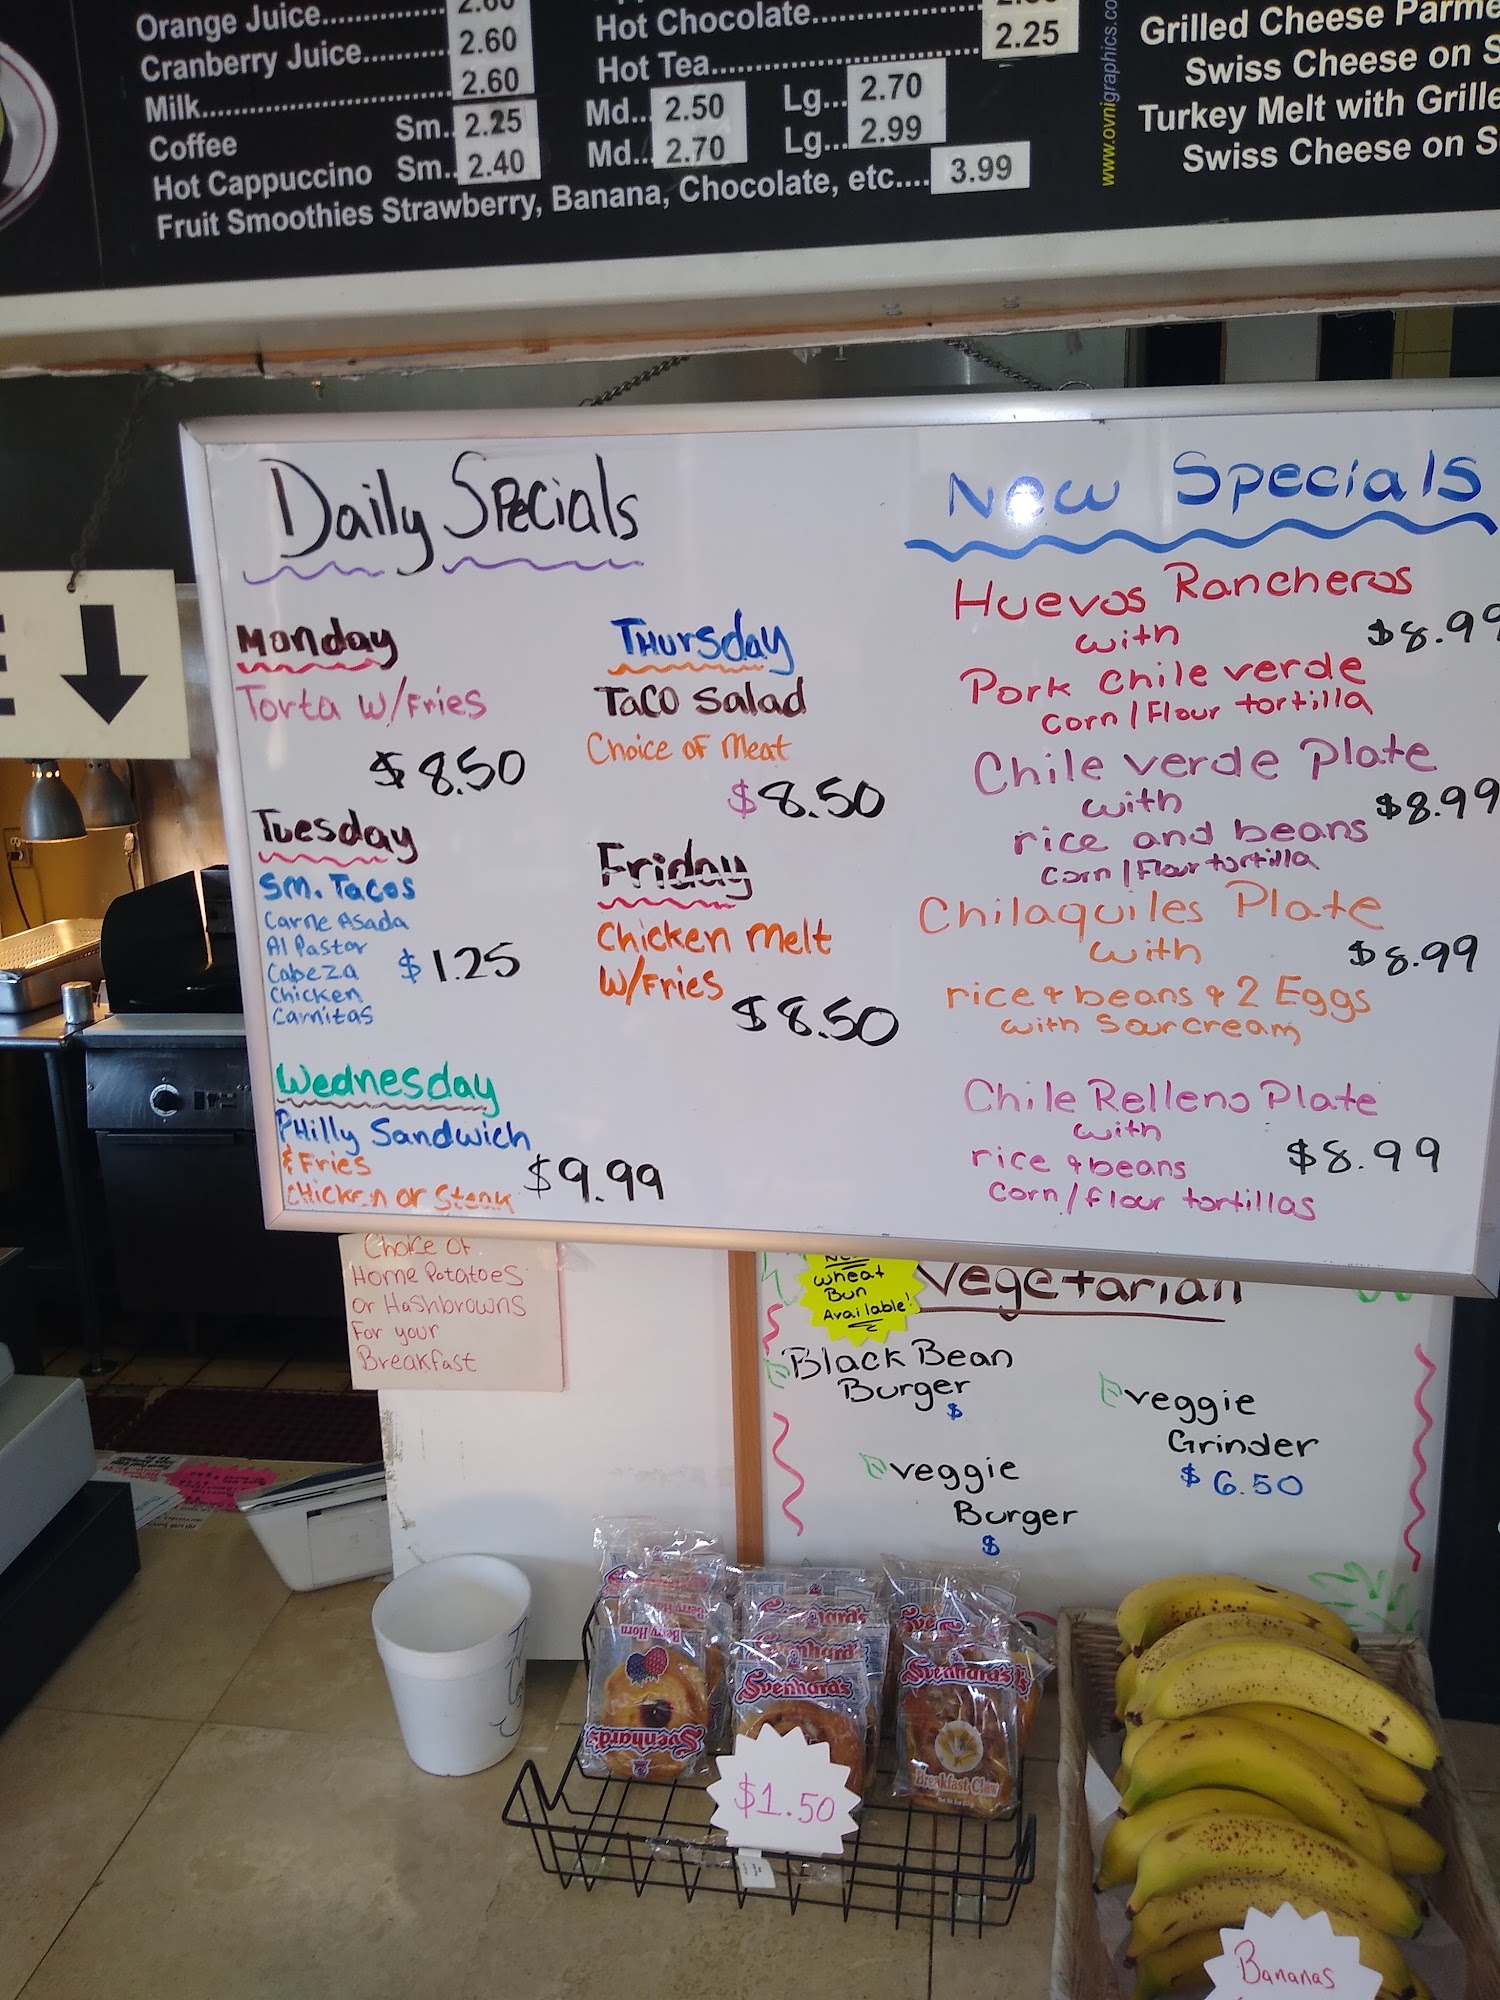 Orange Juice
Cranberry Juice 2.60
Milk 2.60
Coffee Sm.. 2.25 Md... 2.50 Lg... 2.70
Hot Cappuccino Sm.. 2.40 Md... 2.70 Lg... 2.99
Fruit Smoothies Strawberry, Banana, Chocolate, etc.... 3.99
Hot Chocolate
Hot Tea 2.25
www.ovnigraphics.co
Grilled Cheese Parme
Swiss Cheese on S
Turkey Melt with Grille
Swiss Cheese on S
Daily Specials
Monday
Torta w/Fries
$8.50
Tuesday
Sm. Tacos
Carne Asada
Al Pastor
Cabeza
Chicken
Carnitas
$1.25
Wednesday
Philly Sandwich
& Fries
Chicken or Steak
$9.99
Thursday
Taco Salad
Choice of Meat
$8.50
Friday
Chicken Melt
w/Fries
$8.50
New Specials
Huevos Rancheros
with
$8.99
Pork chile verde
corn/Flour tortilla
Chile verde Plate
with
$8.99
rice and beans
corn/Flour tortilla
Chilaquiles Plate
with
$8.99
rice & beans & 2 Eggs
with sour cream
Chile Relleno Plate
with
rice & beans
$8.99
corn/flour tortillas
Choice of
Home Potatoes
or Hashbrowns
For your
Breakfast
Wheat
Bun
Available!
Vegetarian
Black Bean
Burger
$
veggie
Grinder
$6.50
veggie
Burger
$
Berry Horn
Svenhard's
Svenhard's
Svenhard's
Svenhard's
Breakfast Claw
$1.50
Bananas